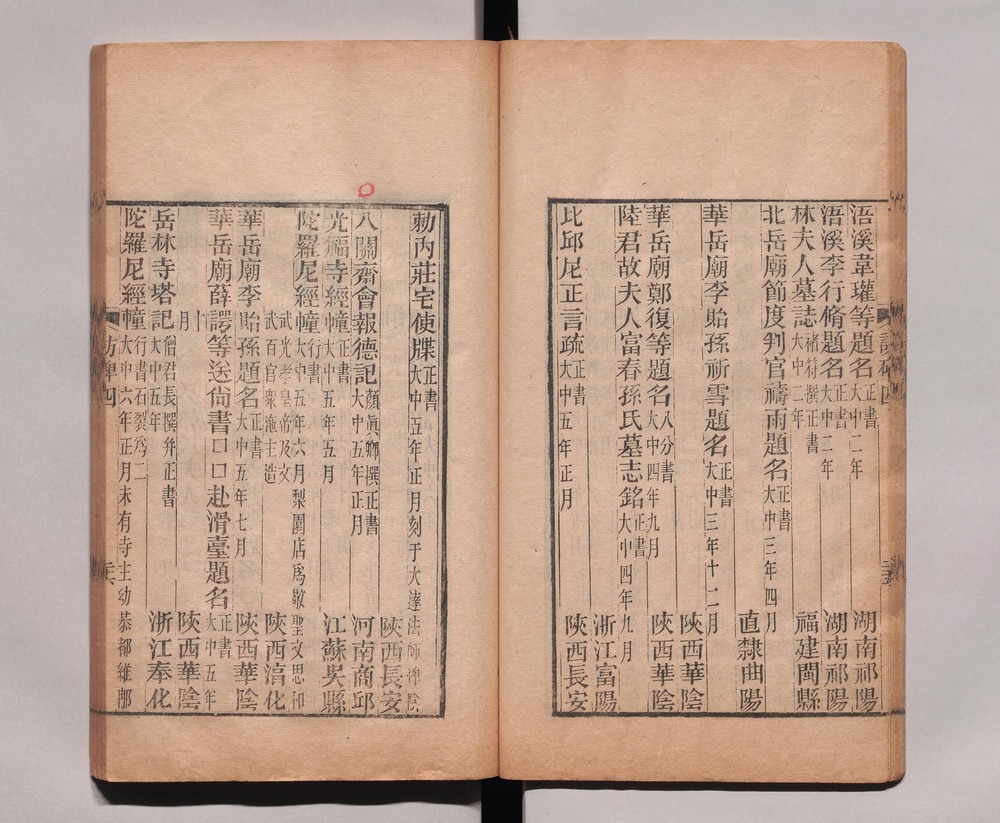 浯溪韋瓘等題名正書大中二年 湖南祁陽
浯溪李行脩題名正書大中二年 湖南祁陽
林夫人墓誌褚符撰正書大中二年 福建閩縣
北岳廟節度判官禱雨題名正書大中三年四月
直隸曲陽
華岳廟李貽孫祈雪題名正書大中三年十二月
陝西華陰
華岳廟鄭復等題名八分書大中四年九月 陝西華陰
陸君故夫人富春孫氏墓志銘正書大中四年九月
浙江富陽
比邱尼正言疏正書大中五年正月 陝西長安
勅內莊宅使牒正書大中五年正月刻于大達法師碑陰
陝西長安
八關齋會報德記顏眞卿撰正書大中五年正月 河南商邱
光福寺經幢正書大中五年五月 江蘇吳縣
陀羅尼經幢行書大中五年六月梨園店爲敬聖文思和
武光孝皇帝及文武百官衆施主造 陝西淯化
華岳廟李貽孫題名正書大中五年七月 陝西華陰
華岳廟薛諤等送尙書口口赴滑臺題名正書大中五年
十月 陝西華陰
岳林寺塔記僧君長撰并正書大中五年 浙江奉化
陀羅尼經幢行書石裂爲二大中六年正月末有寺主幼恭都維那
訪碑四